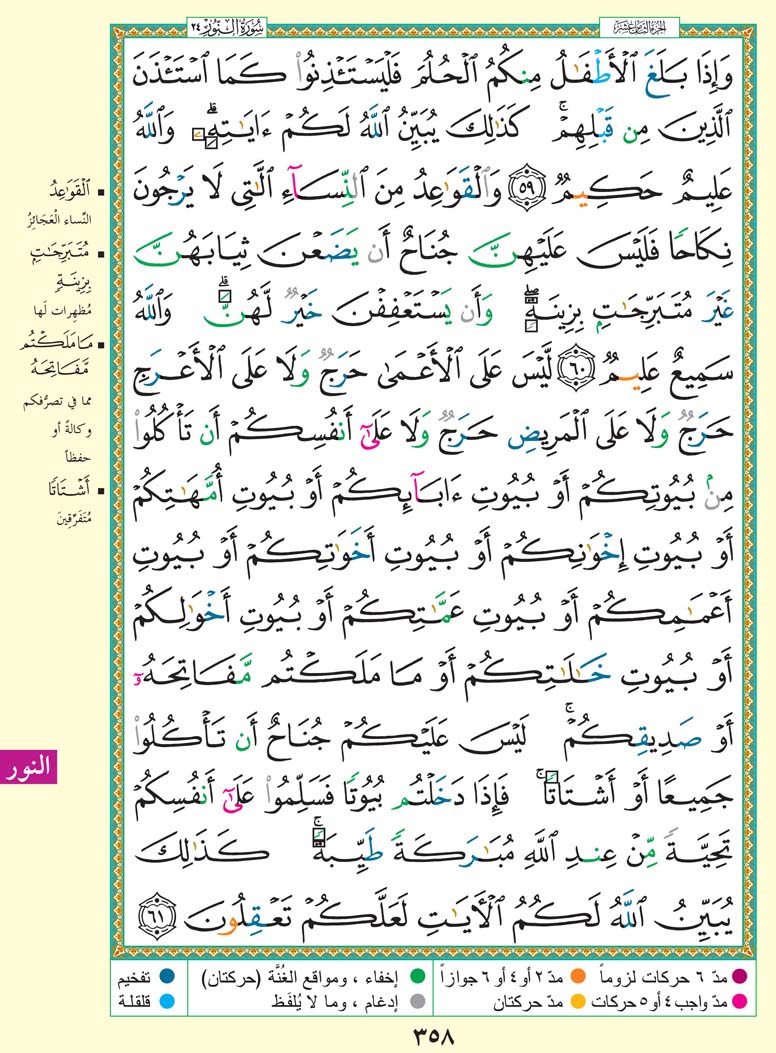 الجزء الثامن عشر
سُورَةُ النُّورِ ٢٤
وَإِذَا بَلَغَ ٱلْأَطْفَٰلُ مِنكُمُ ٱلْحُلُمَ فَلْيَسْتَـْٔذِنُوا۟ كَمَا ٱسْتَـْٔذَنَ
ٱلَّذِينَ مِن قَبْلِهِمْ ۚ كَذَٰلِكَ يُبَيِّنُ ٱللَّهُ لَكُمْ ءَايَٰتِهِۦ ۗ وَٱللَّهُ
عَلِيمٌ حَكِيمٌ ٥٩ وَٱلْقَوَٰعِدُ مِنَ ٱلنِّسَآءِ ٱلَّٰتِى لَا يَرْجُونَ
نِكَاحًا فَلَيْسَ عَلَيْهِنَّ جُنَاحٌ أَن يَضَعْنَ ثِيَابَهُنَّ
غَيْرَ مُتَبَرِّجَٰتٍۭ بِزِينَةٍ ۖ وَأَن يَسْتَعْفِفْنَ خَيْرٌ لَّهُنَّ ۗ وَٱللَّهُ
سَمِيعٌ عَلِيمٌ ٦٠ لَّيْسَ عَلَى ٱلْأَعْمَىٰ حَرَجٌ وَلَا عَلَى ٱلْأَعْرَجِ
حَرَجٌ وَلَا عَلَى ٱلْمَرِيضِ حَرَجٌ وَلَا عَلَىٰٓ أَنفُسِكُمْ أَن تَأْكُلُوا۟
مِنۢ بُيُوتِكُمْ أَوْ بُيُوتِ ءَابَآئِكُمْ أَوْ بُيُوتِ أُمَّهَٰتِكُمْ
أَوْ بُيُوتِ إِخْوَٰنِكُمْ أَوْ بُيُوتِ أَخَوَٰتِكُمْ أَوْ بُيُوتِ
أَعْمَٰمِكُمْ أَوْ بُيُوتِ عَمَّٰتِكُمْ أَوْ بُيُوتِ أَخْوَٰلِكُمْ
أَوْ بُيُوتِ خَٰلَٰتِكُمْ أَوْ مَا مَلَكْتُم مَّفَاتِحَهُۥٓ
أَوْ صَدِيقِكُمْ ۚ لَيْسَ عَلَيْكُمْ جُنَاحٌ أَن تَأْكُلُوا۟
جَمِيعًا أَوْ أَشْتَاتًا ۚ فَإِذَا دَخَلْتُم بُيُوتًا فَسَلِّمُوا۟ عَلَىٰٓ أَنفُسِكُمْ
تَحِيَّةً مِّنْ عِندِ ٱللَّهِ مُبَٰرَكَةً طَيِّبَةً ۚ كَذَٰلِكَ
يُبَيِّنُ ٱللَّهُ لَكُمُ ٱلْءَايَٰتِ لَعَلَّكُمْ تَعْقِلُونَ ٦١
ٱلْقَوَٰعِدُ
النِّساء العَجائزُ
مُتَبَرِّجَٰتٍ
بِزِينَةٍ
مُظهِرات لَها
مَا مَلَكْتُم
مَّفَاتِحَهُ
مما في تصرُّفكم
وكالةً أو
حفظاً
أَشْتَاتًا
مُتَفَرِّقِينَ
النور
مدّ ٦ حركات لزوماً مدّ ٢ أو ٤ أو ٦ جوازاً إخفاء ، ومواقع الغُنَّة (حركتان) تفخيم
مدّ واجب ٤ أو ٥ حركات مدّ حركتان إدغام ، وما لا يُلفَظ قلقلة
٣٥٨